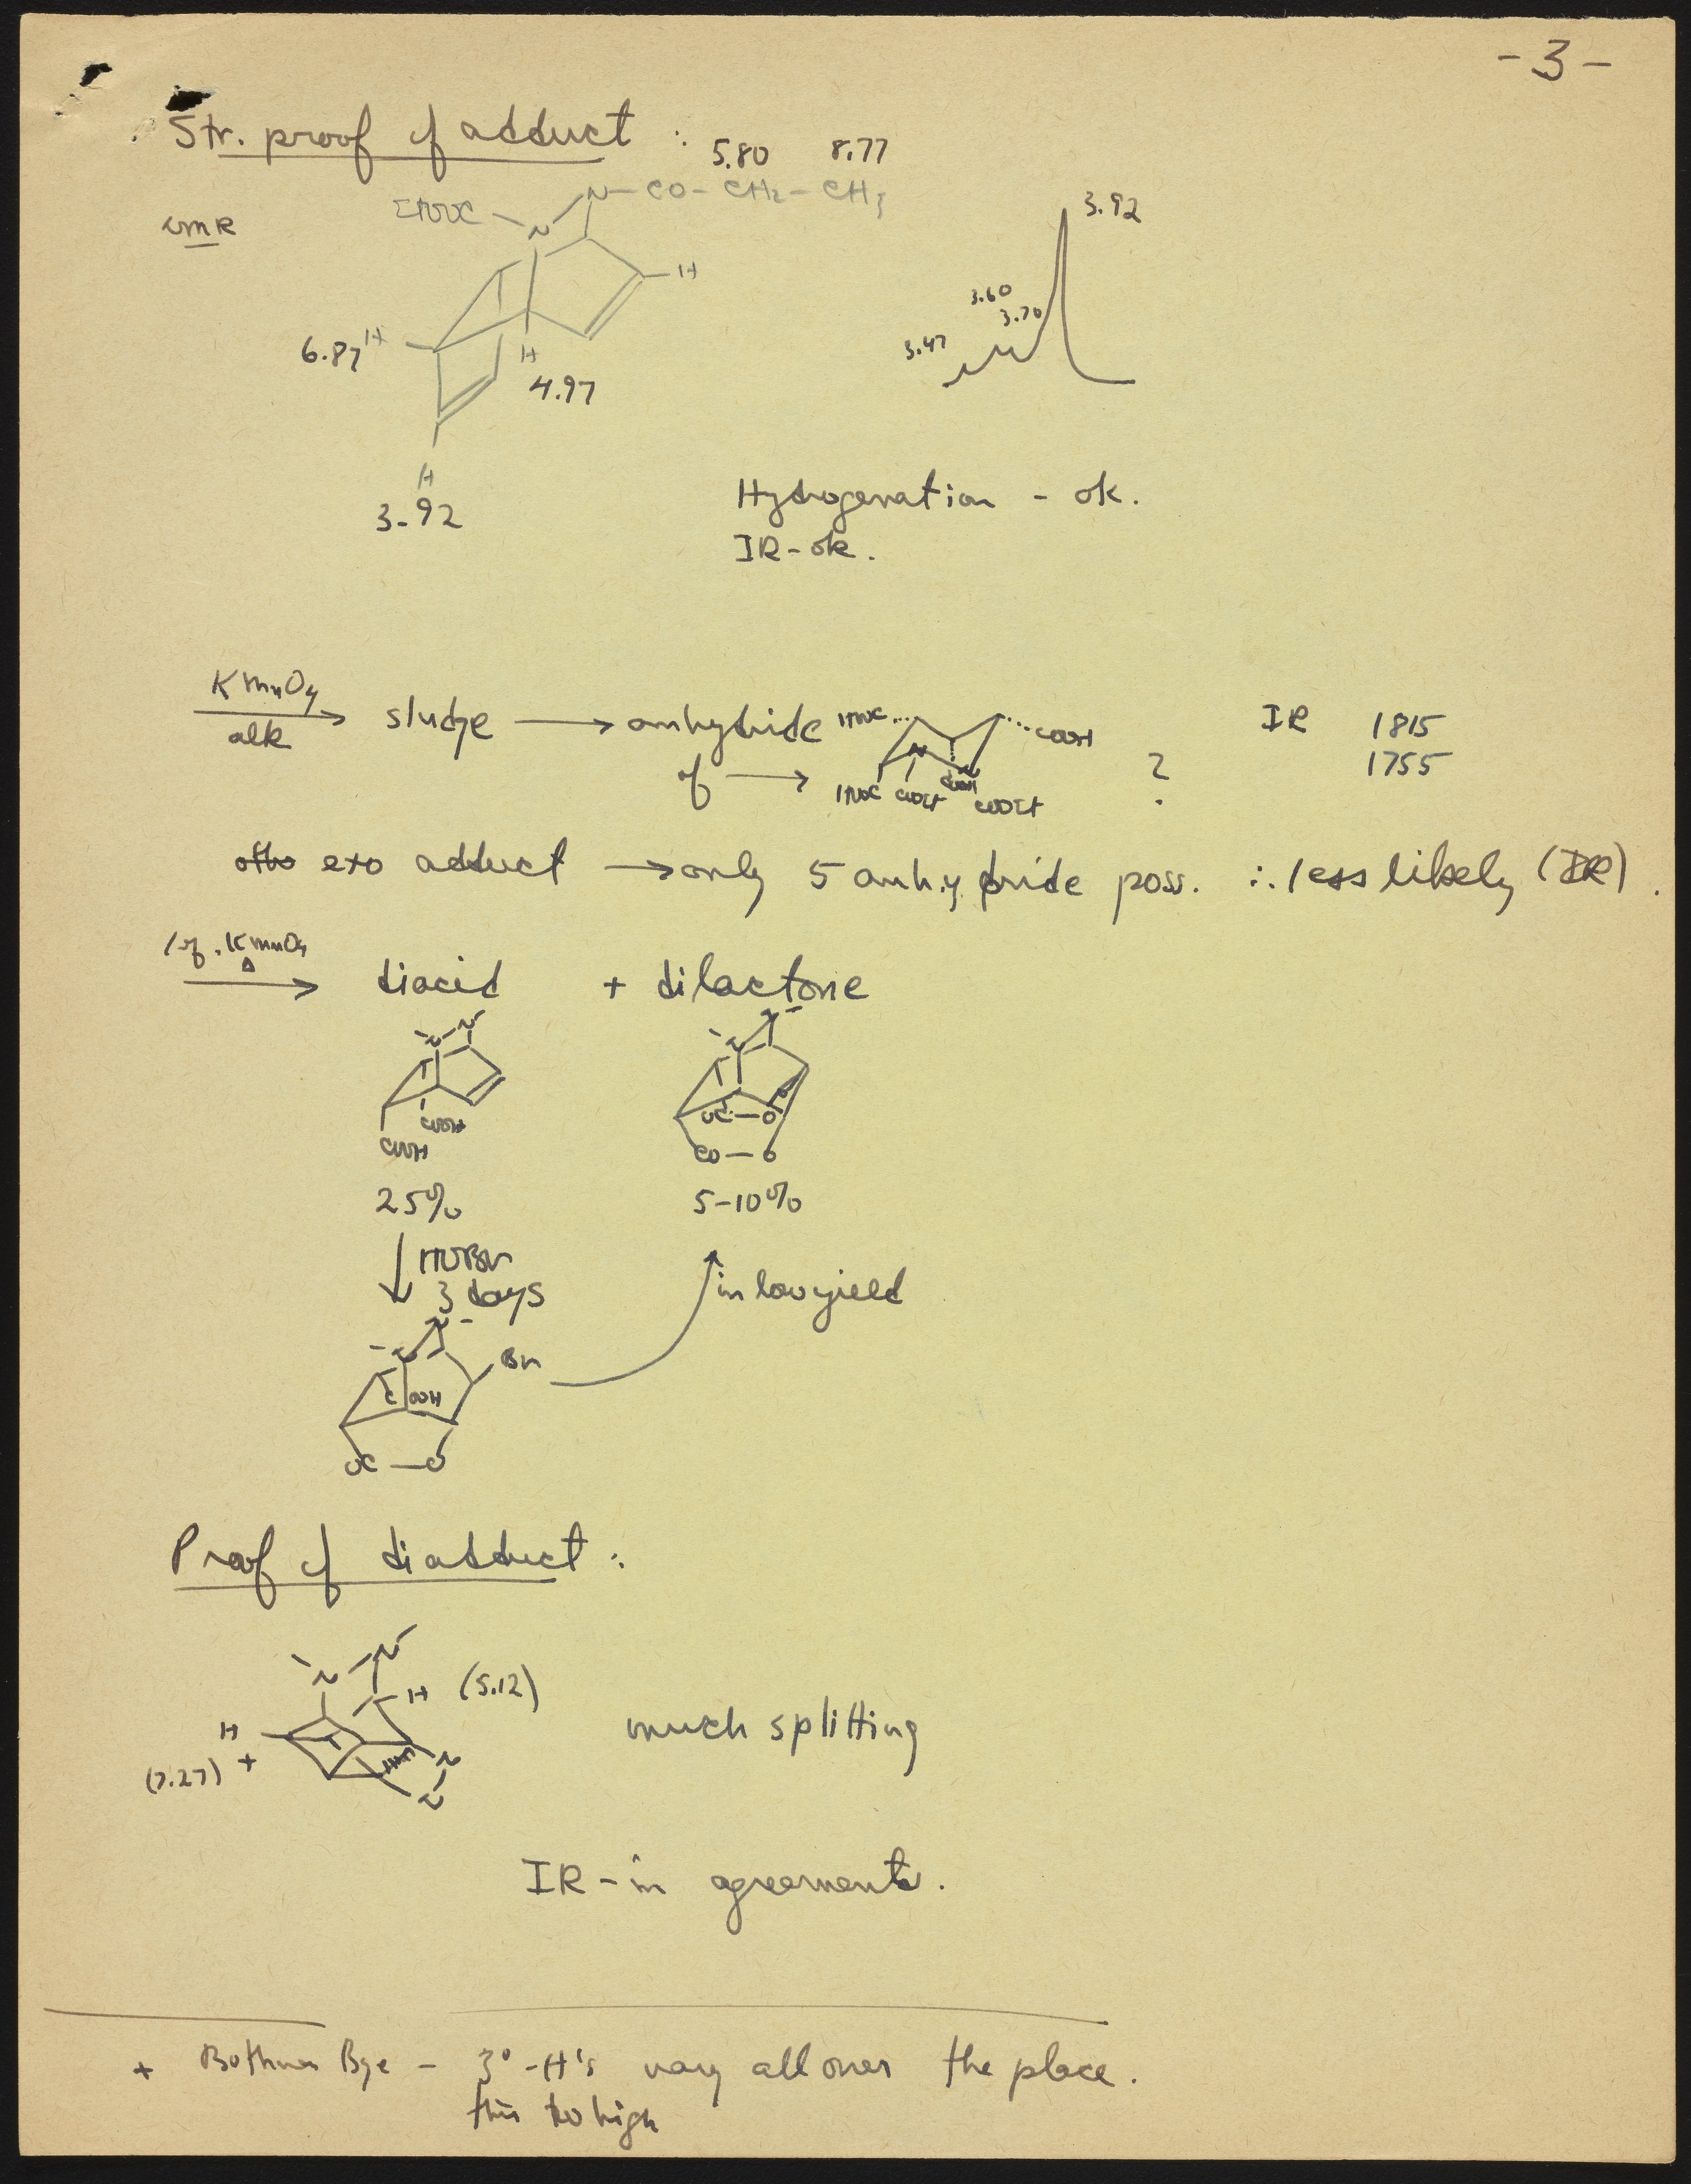 -3-
Str. proof of adduct :
5.80 8.77
EtOOC - N - N - CO - CH2 - CH3
nmR
3.92
H
3.60
3.70
6.87 H
H
3.47
4.97
H
3.92
Hydrogenation - ok.
IR - ok.
KMnO4
alk
sludge → anhydride
of →
HOOC COOH
HOOC COOEt COOH COOEt
?
IR 1815
1755
exo adduct → only 5 anhydride poss. ∴ less likely (IR).
1 eq. KMnO4
Δ
diacid + dilactone
N - N
N - N
COOH
COOH
OC - O
CO - O
25%
5-10%
HOBr
3 days
in low yield
N - N
Br
COOH
OC - O
Proof of diadduct :
N - N
H (5.12)
H
(7.27) +
N
N
much splitting
IR - in agreement.
+ Bothner Bye - 3° - H's vary all over the place.
this too high